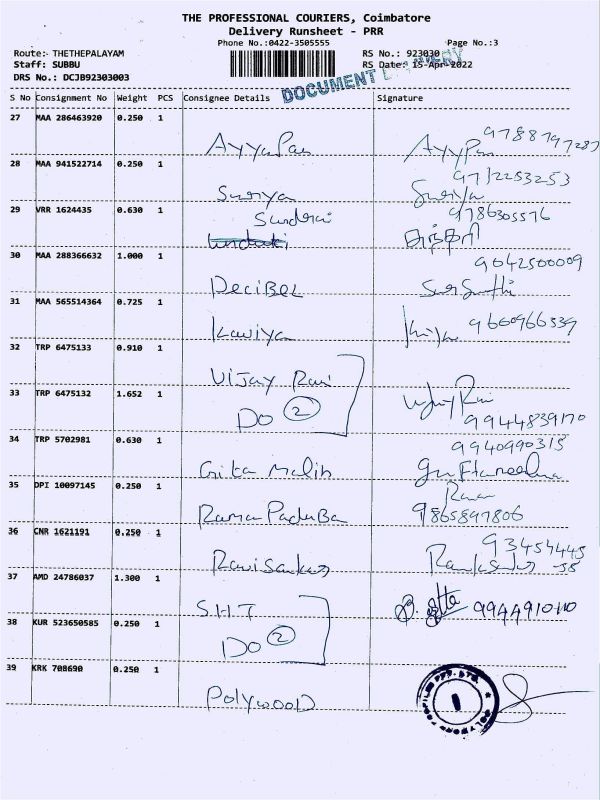 THE PROFESSIONAL COURIERS, Coimbatore
Delivery Runsheet - PRR
Phone No.:0422-3505555 Page No.:3
Route:- THETHEPALAYAM RS No.: 923030
Staff: SUBBU RS Date: 15-Apr-2022
DRS No.: DCJB92303003
DOCUMENT DELIVERY
S No Consignment No Weight PCS Consignee Details Signature
27 MAA 286463920 0.250 1
Ayyapan Ayypan 9788797287
28 MAA 941522714 0.250 1
Suriya Suriya
29 VRR 1624435 0.630 1
Sundari 9786305576
சுந்தரி
30 MAA 288366632 1.000 1
Decibel 9042500009
31 MAA 565514364 0.725 1
Kaviya 9660966339
32 TRP 6475133 0.910 1
Vijay Ravi
33 TRP 6475132 1.652 1
DO 2 9944839170
34 TRP 5702981 0.630 1
9940990315
35 DPI 10097145 0.250 1
Rama Paduba 9865897806
36 CNR 1621191 0.250 1
Ravisankar 93454445
55
37 AMD 24786037 1.300 1
S.H.T
38 KUR 523650585 0.250 1
DO 2
39 KRK 708690 0.250 1
Polywood